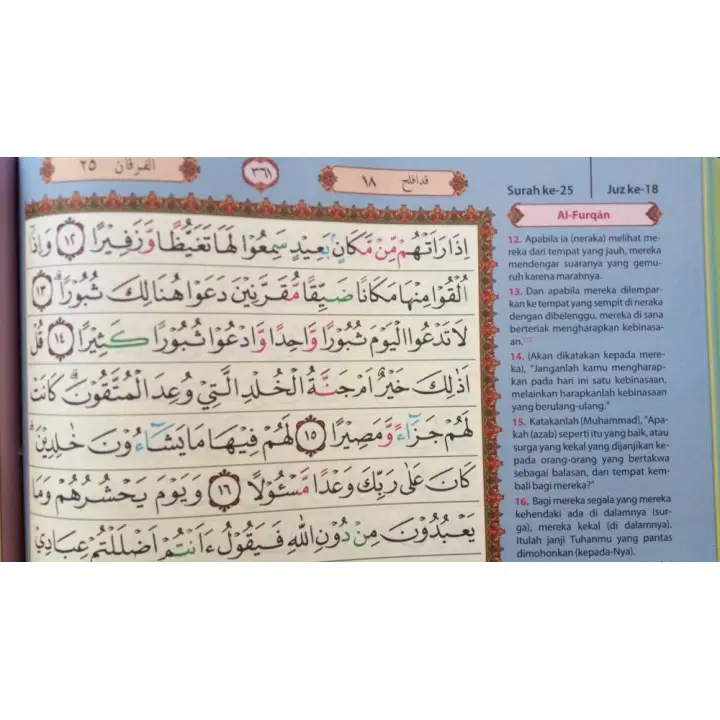 الفرقان ٢٥
٣٦١
قدافلح ١٨
Surah ke-25
Juz ke-18
Al-Furqān
اِذَا رَاَتْهُمْ مِّنْ مَّكَانٍۢ بَعِيْدٍ سَمِعُوْا لَهَا تَغَيُّظًا وَّزَفِيْرًا ۝١٢ وَاِذَآ
اُلْقُوْا مِنْهَا مَكَانًا ضَيِّقًا مُّقَرَّنِيْنَ دَعَوْا هُنَالِكَ ثُبُوْرًاۗ ۝١٣
لَا تَدْعُوا الْيَوْمَ ثُبُوْرًا وَّاحِدًا وَّادْعُوْا ثُبُوْرًا كَثِيْرًا ۝١٤ قُلْ
اَذٰلِكَ خَيْرٌ اَمْ جَنَّةُ الْخُلْدِ الَّتِيْ وُعِدَ الْمُتَّقُوْنَۗ كَانَتْ
لَهُمْ جَزَاۤءً وَّمَصِيْرًا ۝١٥ لَهُمْ فِيْهَا مَا يَشَاۤءُوْنَ خٰلِدِيْنَۗ
كَانَ عَلٰى رَبِّكَ وَعْدًا مَّسْـُٔوْلًا ۝١٦ وَيَوْمَ يَحْشُرُهُمْ وَمَا
يَعْبُدُوْنَ مِنْ دُوْنِ اللّٰهِ فَيَقُوْلُ ءَاَنْتُمْ اَضْلَلْتُمْ عِبَادِيْ
12. Apabila ia (neraka) melihat me-
reka dari tempat yang jauh, mereka
mendengar suaranya yang gemu-
ruh karena marahnya.
13. Dan apabila mereka dilempar-
kan ke tempat yang sempit di neraka
dengan dibelenggu, mereka di sana
berteriak mengharapkan kebinasa-
an.
14. (Akan dikatakan kepada mere-
ka), "Janganlah kamu mengharap-
kan pada hari ini satu kebinasaan,
melainkan harapkanlah kebinasaan
yang berulang-ulang."
15. Katakanlah (Muhammad), "Apa-
kah (azab) seperti itu yang baik, atau
surga yang kekal yang dijanjikan ke-
pada orang-orang yang bertakwa
sebagai balasan, dan tempat kem-
bali bagi mereka?"
16. Bagi mereka segala yang mereka
kehendaki ada di dalamnya (sur-
ga), mereka kekal (di dalamnya).
Itulah janji Tuhanmu yang pantas
dimohonkan (kepada-Nya).